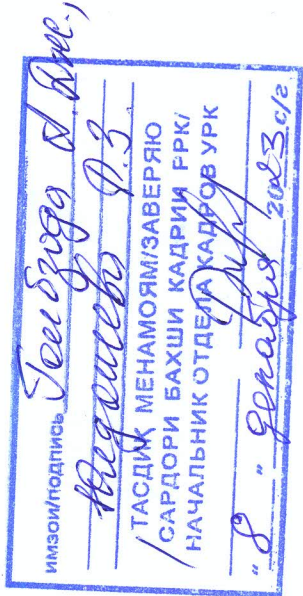 ИМЗОИ/ПОДПИСЬ
Ф.З.
/ТАСДИҚ МЕНАМОЯМ/ЗАВЕРЯЮ
САРДОРИ БАХШИ КАДРИИ РРК/
НАЧАЛЬНИК ОТДЕЛА КАДРОВ УРК
"8" декабря 2023 с/г